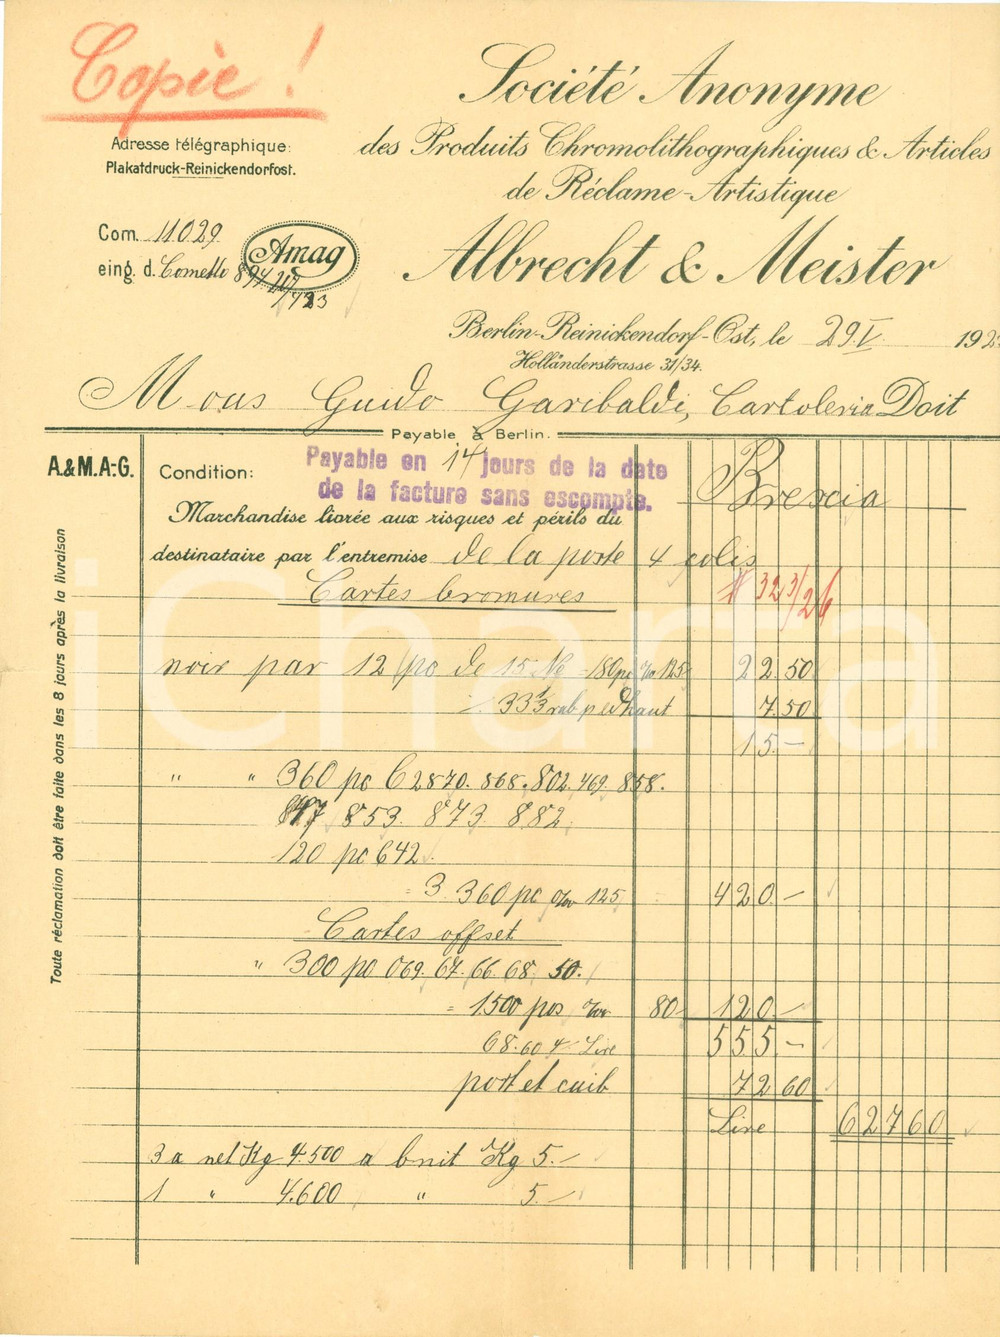 Copie !
Société Anonyme
des Produits Chromolithographiques & Articles
de Réclame-Artistique
Albrecht & Meister
Adresse télégraphique:
Plakatdruck-Reinickendorfost.
Com. 11029
eing. d. Cometto
Amag
Berlin-Reinickendorf-Ost, le 29 I 192
Holländerstrasse 31/34.
Mous Guido Garibaldi, Cartoleria Doit
Payable à Berlin.
Brescia
A.&M.A.-G.
Condition:
Payable en 14 jours de la date
de la facture sans escompte.
Marchandise livrée aux risques et périls du
destinataire par l'entremise de la poste 4 colis
Cartes bromures
# 323/26
noir par 12 po de 15 125 22.50
33 1/3 7.50
15.-
" " 360 pc C 2870. 868. 802. 469. 858.
847 853. 873 882.
120 pc 642.
= 3.360 pc %00 125 420.-
Cartes offset
" 300 pc 069. 67. 66. 68. 50.
= 1500 pos %00 80 120.-
68.60 + Lire 555.-
port et 72 60
Lire 627 60
3 a net Kg 4.500 a Kg 5.-
1 " 4.600 " 5.-
Toute réclamation doit être faite dans les 8 jours après la livraison
iCharta